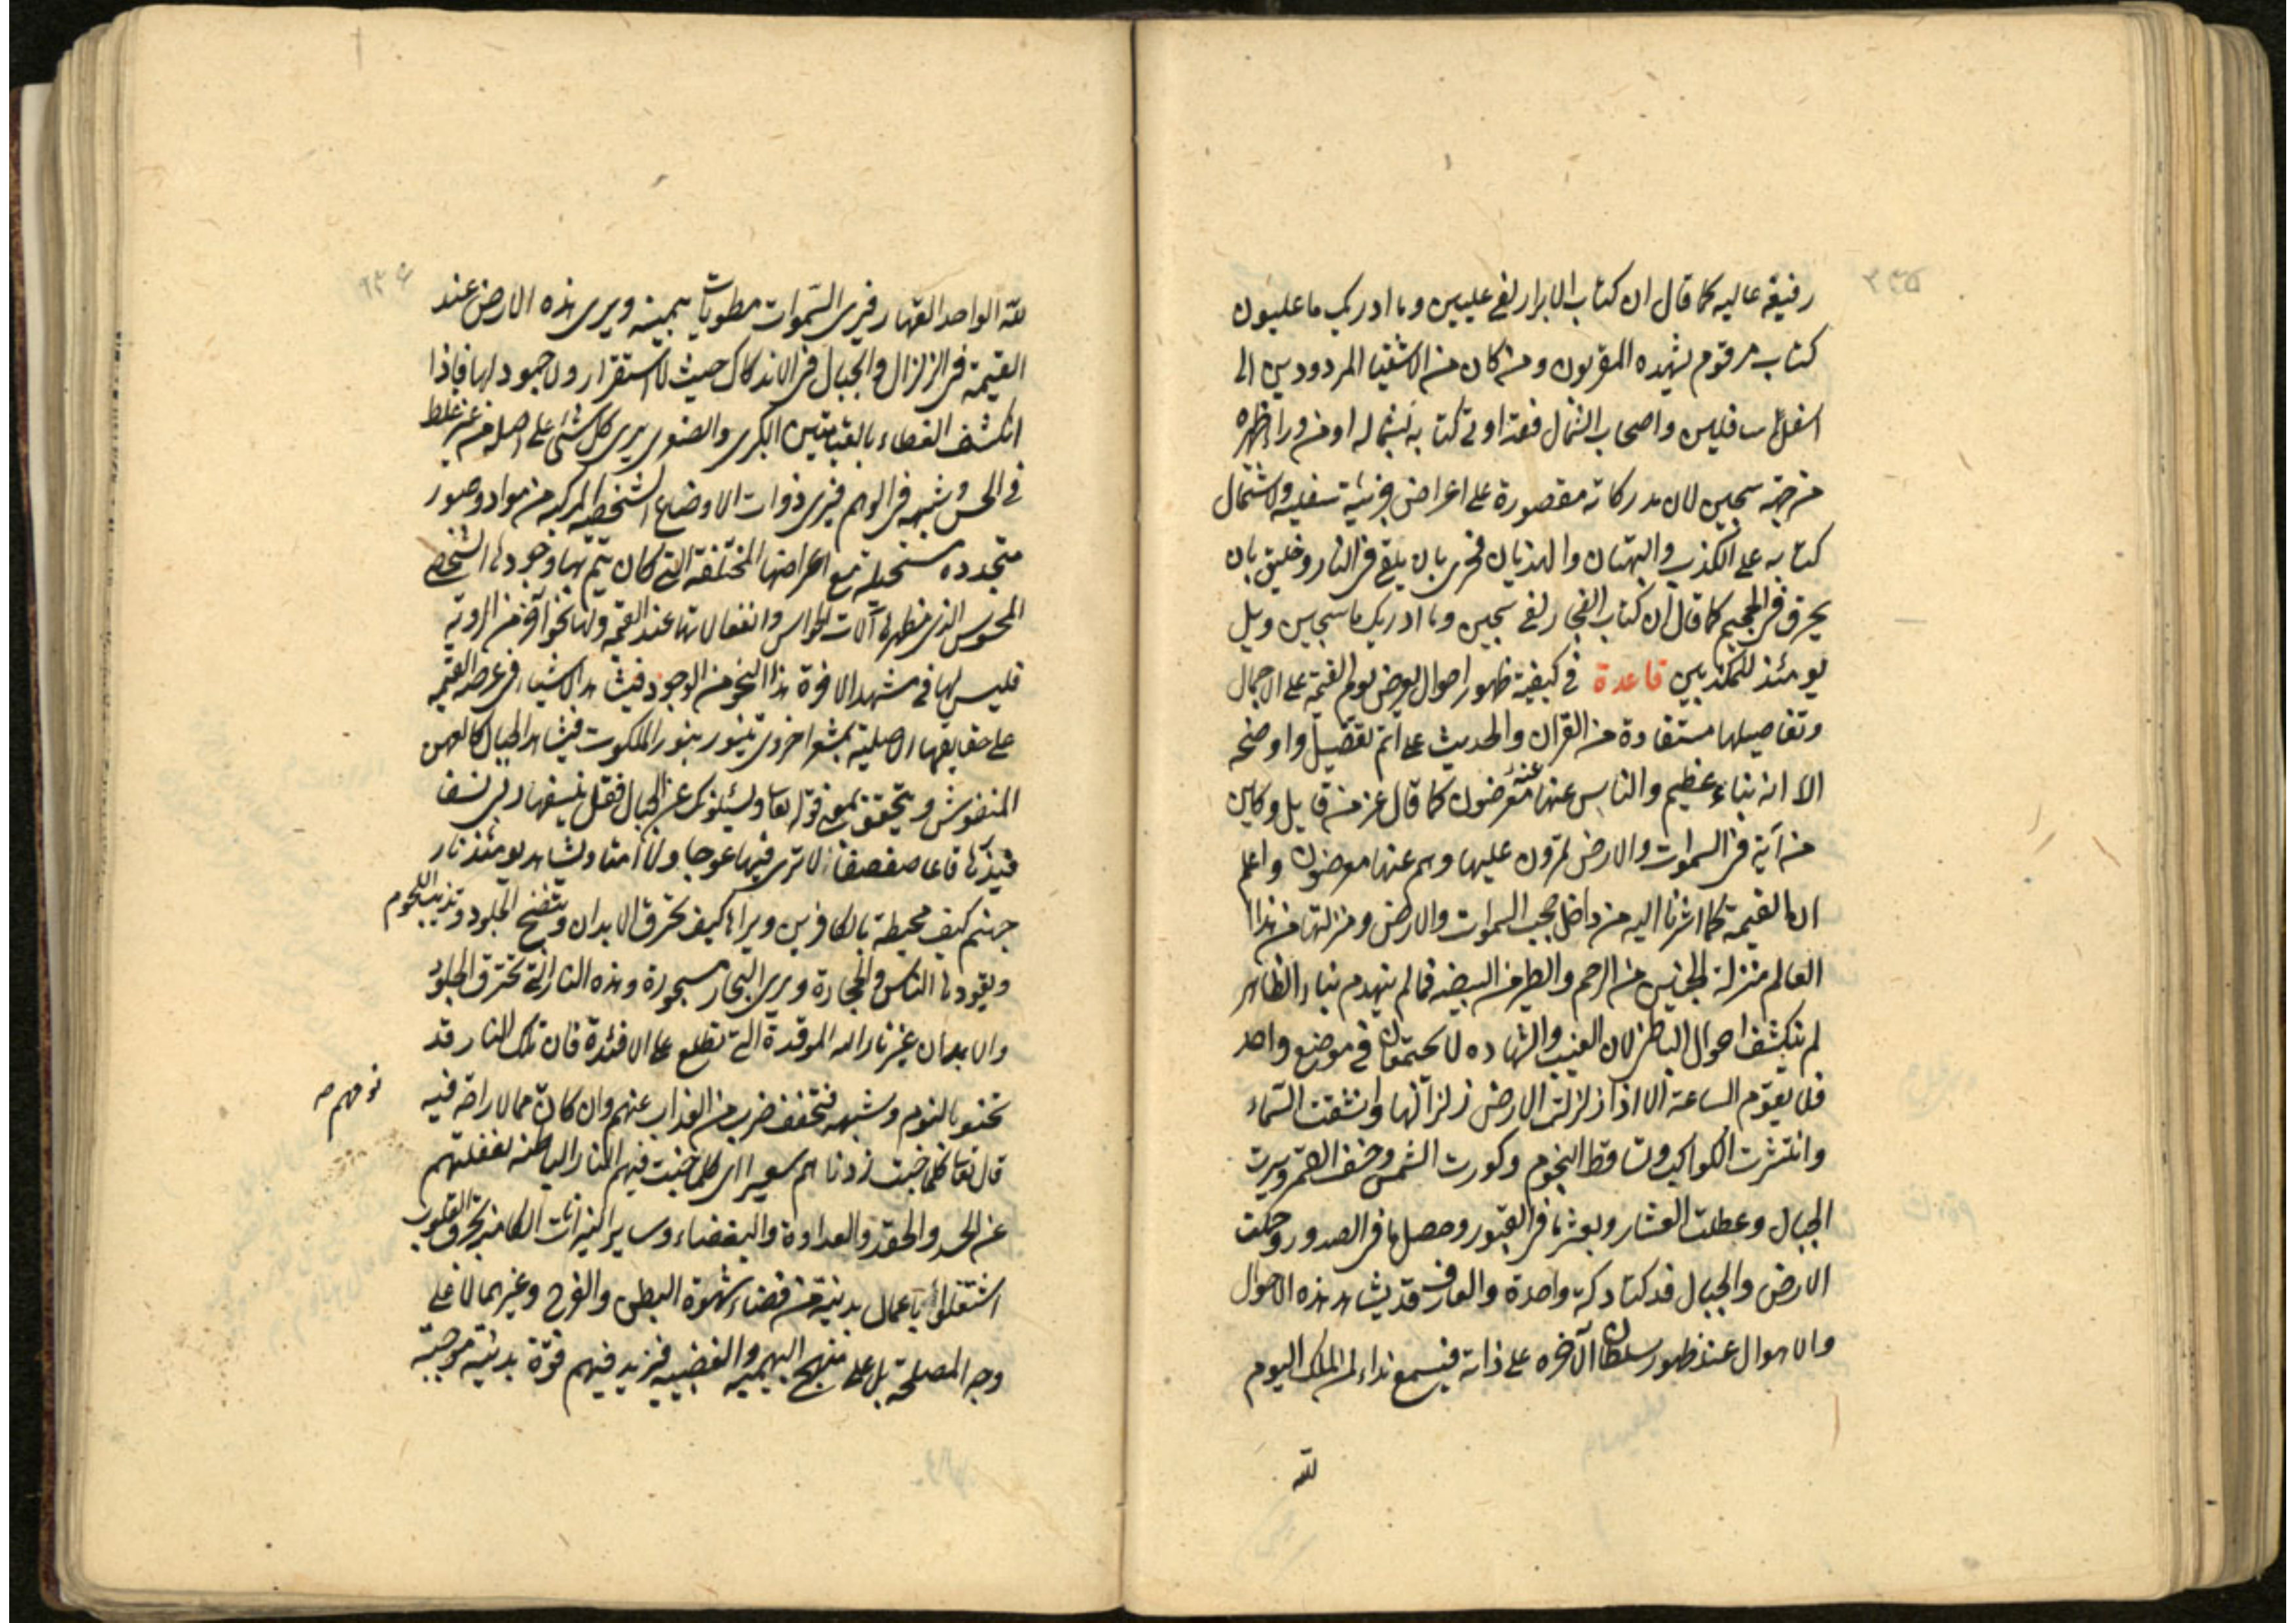 ٢٣٥
رفيعة عاليه كما قال ان كتاب الابرار لفى عليين وما ادريك ما عليون
كتاب مرقوم يشهده المقربون ومن كان من الاشقيا المردودين الى
اسفل سافلين واصحاب الشمال فقد اوتى كتابه بشماله او من وراء ظهره
من جهة سجين لان مدركاته مقصورة على اغراض جزئية سفليه ولاشتمال
كتابه على الكذب والبهتان والهذيان فحرى بان يلقى فى النار وخليق بان
يحرق فى الجحيم كما قال ان كتاب الفجار لفى سجين وما ادريك ما سجين ويل
يومئذ للمكذبين قاعدة فى كيفية ظهور احوال يعرض يوم القيمة على الاجمال
وتفاصيلها مستفادة من القران والحديث على اتم تفصيل واوضحه
الا انه نباء عظيم والناس عنها عنه معرضون كما قال عز من قايل وكاين
من آية فى السموات والارض يمرون عليها وهم عنها معرضون واعلم
ان القيمة كما اشرنا اليه من داخل حجب السموات والارض ومنزلتها من هذا
العالم منزلة الجنين من الرحم والطير من البيضه فما لم ينهدم بناء الظاهر
لم ينكشف احوال الباطن لان الغيب والشهاده لا يجتمعان فى موضع واحد
فلا يقوم الساعة الا اذا زلزلت الارض زلزالها وانشقت السماء
وانتثرت الكواكب وتساقط النجوم وكورت الشمس وخسف القمر وسيرت
الجبال وعطلت العشار وبعثر ما فى القبور وحصل ما فى الصدور وحملت
الارض والجبال فدكتا دكة واحدة والعارف قد يشاهد هذه الاحوال
والاهوال عند ظهور سلطان الآخره على ذاته فيسمع نداء لمن الملك اليوم
لله
٢٣٦
لله الواحد القهار فيرى السموات مطويات بيمينه ويرى هذه الارض عند
القيمة فى الزلزال والجبال فى الاندكاك حيث لا استقرار ولا جمود لها فاذا
انكشف الغطاء بالقيامتين الكبرى والصغرى يرى كل شئ على اصله من غير غلط
فى الحس وشبهه فى الوهم فيرى ذوات الاوضاع الشخصيه المركبه من مواد وصور
متجدده مستحيله مع اعراضها المختلفة التى كان يتم بها وجودها الشخصى
المحسوس الذى مظهرها آلات الحواس وانفعالاتها عند القيمه ولها نحو آخر من الروية
فليس لها فى مشهد الاخرة هذا النحو من الوجود فيشاهد الاشياء فى عرصه القيمه
على حقايقها الاصلية بمشعر اخروى يتنور بنور الملكوت فيشاهد الجبال كالعهن
المنفوش ويتحقق بمعنى قوله تعا ويسئلونك عن الجبال فقل ينسفها ربى نسفا
فيذرها قاعا صفصفا لا ترى فيها عوجا ولا امتا ويشاهد يومئذ نار
جهنم كيف محيطة بالكافرين ويراها كيف تحرق الابدان وتنضج الجلود وتذيب اللحوم
وقودها الناس والحجارة ويرى البحار مسجورة وهذه النار التى تحترق الجلود
والابدان غير نار الله الموقدة التى تطلع على الافئدة فان تلك النار قد
تخبو بالنوم وشبهه فتخفف ضرب من العذاب عنهم وان كان مما لا راحة فيه
نومهم ص
قال تعا كلما خبت زدناهم سعيرا اى كلما خبت فيهم النار الباطنه لغفلتهم
عن الحسد والحقد والعداوة والبغضاء وساير النيرانات الكامنه تحرق القلوب
اشتغلوا باعمال بدنية من قضاء شهوة البطن والفرج وغيرهما لا على
وجه المصلحة بل على منهج البهيميه والغضبيه فيزيد فيهم قوة بدنية موجبة